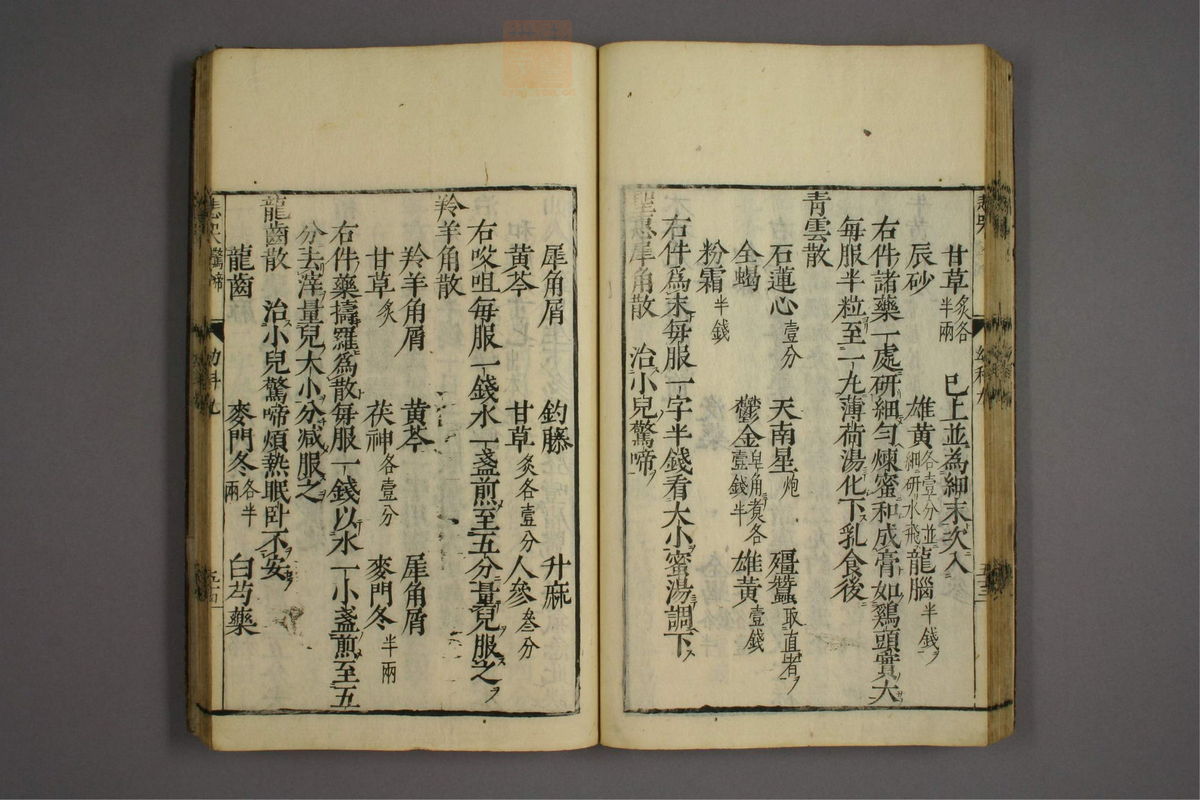 甘草炙各半兩 已上並為細末次入
辰砂 雄黃各壹分並細研水飛 龍腦半錢
右件諸藥一處研細勻煉蜜和成膏如鷄頭實大
每服半粒至一丸薄荷湯化下乳食後
青雲散
石蓮心壹分 天南星炮 殭蠶取直者
全蝎 鬱金皂角煮各壹錢半 雄黃壹錢
粉霜半錢
右件爲末每服一字半錢看大小蜜湯調下
聖惠犀角散 治小兒驚啼
五十三
犀角屑 釣藤 升麻
黃芩 甘草炙各壹分 人參叁分
右㕮咀每服一錢水一盞煎至五分量兒服之
羚羊角散
羚羊角屑 黃芩 犀角屑
甘草炙 茯神各壹分 麥門冬半兩
右件藥擣羅為散每服一錢以水一小盞煎至五
分去滓量兒大小分減服之
龍齒散 治小兒驚啼煩熱眠卧不安
龍齒 麥門冬各半兩 白芍藥
幼科九